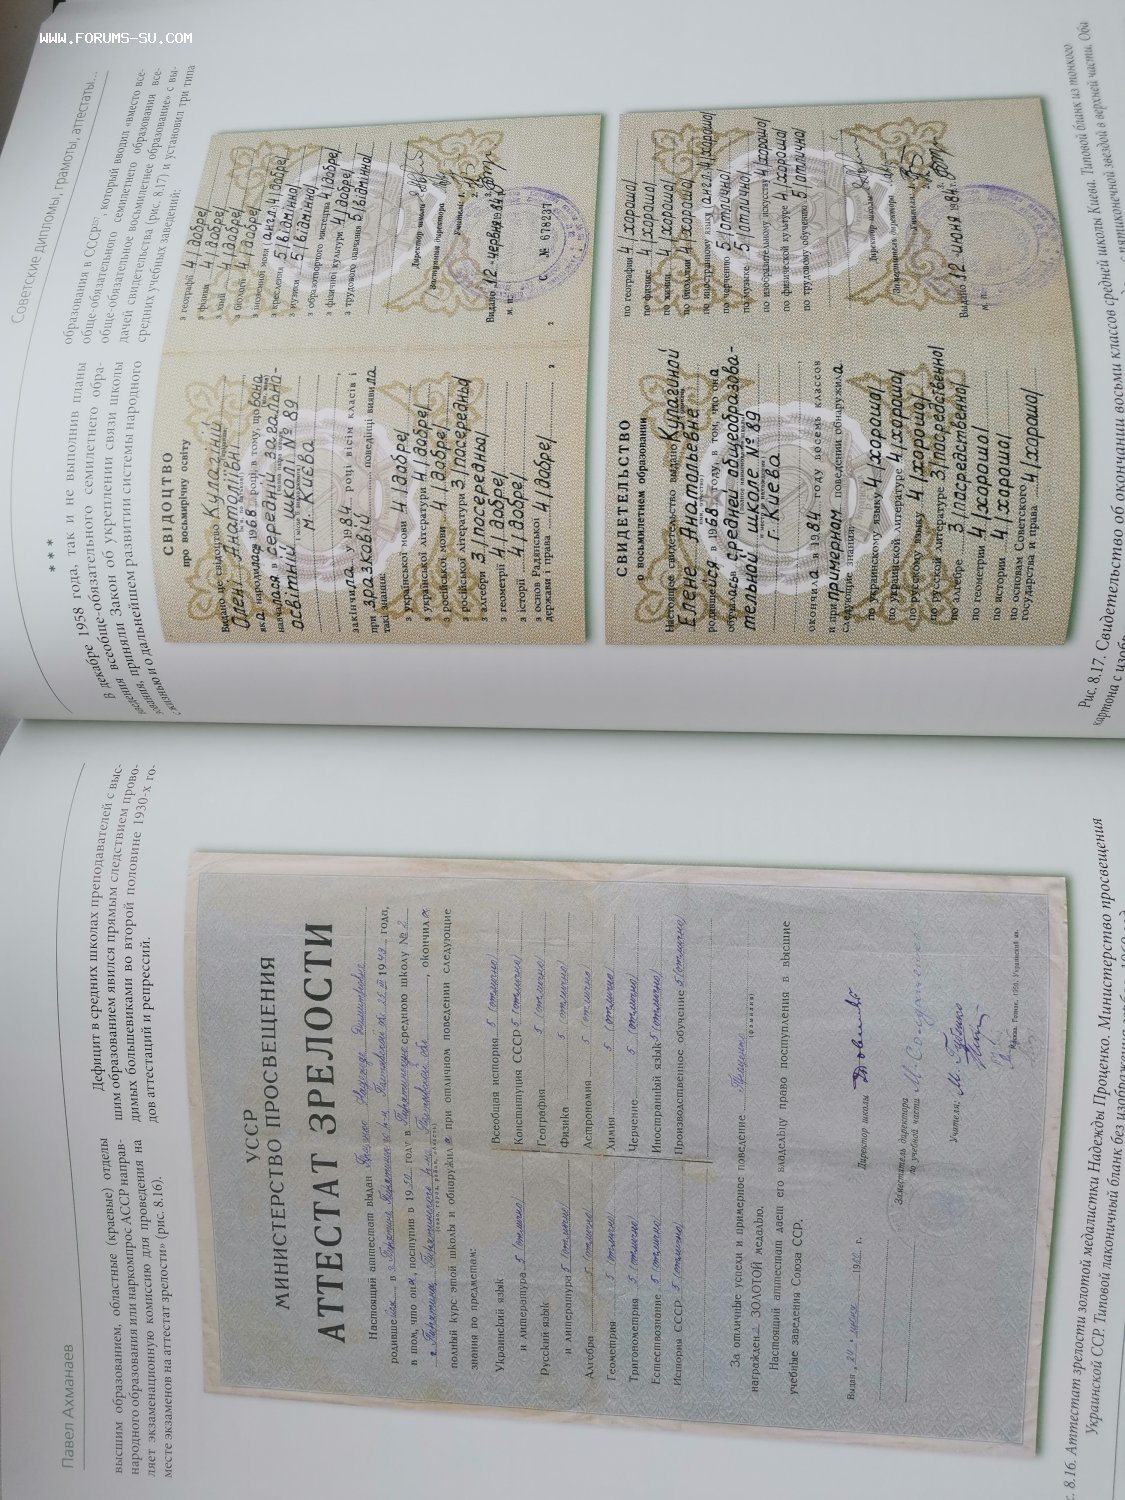 WWW.FORUMS-SU.COM
Павел Ахманаев
высшим образованием, областные (краевые) отделы
народного образования или наркомпрос АССР направ-
ляет экзаменационную комиссию для проведения на
месте экзаменов на аттестат зрелости» (рис. 8.16).
Дефицит в средних школах преподавателей с выс-
шим образованием явился прямым следствием прово-
димых большевиками во второй половине 1930-х го-
дов аттестаций и репрессий.
УССР
МИНИСТЕРСТВО ПРОСВЕЩЕНИЯ
АТТЕСТАТ ЗРЕЛОСТИ
Настоящий аттестат выдан Надежде Дмитриевне
родившейся в 1943 года,
в том, что она, поступив в 19 году в среднюю школу № 2
(село, город, район, область)
, окончила
полный курс этой школы и обнаружила при отличном поведении следующие
знания по предметам:
Украинский язык
и литература 5 (отлично)
Русский язык
и литература 5 (отлично)
Алгебра 5 (отлично)
Геометрия 5 (отлично)
Тригонометрия 5 (отлично)
Естествознание 5 (отлично)
История СССР 5 (отлично)
Всеобщая история 5 (отлично)
Конституция СССР 5 (отлично)
География 5 (отлично)
Физика 5 (отлично)
Астрономия 5 отлично
Химия 5 (отлично)
Черчение 5 (отлично)
Иностранный язык 5 (отлично)
Производственное обучение 5 (отлично)
За отличные успехи и примерное поведение
(фамилия)
награждена ЗОЛОТОЙ медалью.
Настоящий аттестат дает его владельцу право поступления в высшие
учебные заведения Союза ССР.
Выдан 1960 г.
Директор школы
Заместитель директора
по учебной части
Учителя:
Рис. 8.16. Аттестат зрелости золотой медалистки Надежды Проценко. Министерство просвещения
Украинской ССР. Типовой лаконичный бланк без изображения
Советские дипломы, грамоты, аттестаты…
***
В декабре 1958 года, так и не выполнив планы
всеобще-обязательного семилетнего обра-
зования, приняли «Закон об укреплении связи школы
с жизнью и о дальнейшем развитии системы народного
образования в СССР», который вводил «вместо все-
обще-обязательного семилетнего образования все-
обще-обязательное восьмилетнее образование» с вы-
дачей свидетельства (рис. 8.17) и установил три типа
средних учебных заведений:
СВІДОЦТВО
про восьмирічну освіту
Видано це свідоцтво Кулагіній
Олені Анатоліївні
яка народилася 1968 року, в тому, що вона
навчалася в середній загально-
освітній школі № 89
м. Києва
закінчила у 1984 році вісім класів і
при зразковій поведінці виявила
такі знання:
з української мови 4 (добре)
з української літератури 4 (добре)
з російської мови 4 (добре)
з російської літератури 3 (посередньо)
з алгебри 3 (посередньо)
з геометрії 4 (добре)
з історії 4 (добре)
з основ Радянської
держави і права 4 (добре)
з географії 4 (добре)
з фізики 4 (добре)
з хімії 4 (добре)
з біології 4 (добре)
з іноземної мови (англ.) 4 (добре)
з креслення 5 (відмінно)
з музики 5 (відмінно)
з образотворчого мистецтва 4 (добре)
з фізичної культури 4 (добре)
з трудового навчання 5 (відмінно)
Директор школи
Заступник директора
Учителі:
Видано 12 червня 1984 р.
М. П.
С № 678237
СВИДЕТЕЛЬСТВО
о восьмилетнем образовании
Настоящее свидетельство выдано Кулагиной
Елене Анатольевне
родившейся в 1968 году, в том, что она
обучалась в средней общеобразова-
тельной школе № 89
г. Киева
окончила в 1984 году восемь классов
и при примерном поведении обнаружила
следующие знания:
по украинскому языку 4 (хорошо)
по украинской литературе 4 (хорошо)
по русскому языку 4 (хорошо)
по русской литературе 3 (посредственно)
по алгебре 3 (посредственно)
по геометрии 4 (хорошо)
по истории 4 (хорошо)
по основам Советского
государства и права 4 (хорошо)
по географии 4 (хорошо)
по физике 4 (хорошо)
по химии 4 (хорошо)
по биологии 4 (хорошо)
по иностранному языку (англ.) 4 (хорошо)
по черчению 5 (отлично)
по музыке 5 (отлично)
по изобразительному искусству 4 (хорошо)
по физической культуре 4 (хорошо)
по трудовому обучению 5 (отлично)
Директор школы
Заместитель директора
Учителя:
Выдано 12 июня 1984 г.
М. П.
Рис. 8.17. Свидетельство об окончании восьми классов средней школы Киева. Типовой бланк из тонкого
картона с изобр пятиконечной звездой в верхней части. Оба